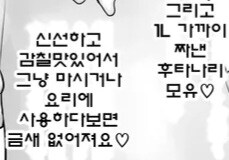 그리고
1L 가까이
짜낸
후타나리
모유♡
신선하고
감칠맛있어서
그냥 마시거나
요리에
사용하다보면
금새 없어져요♡